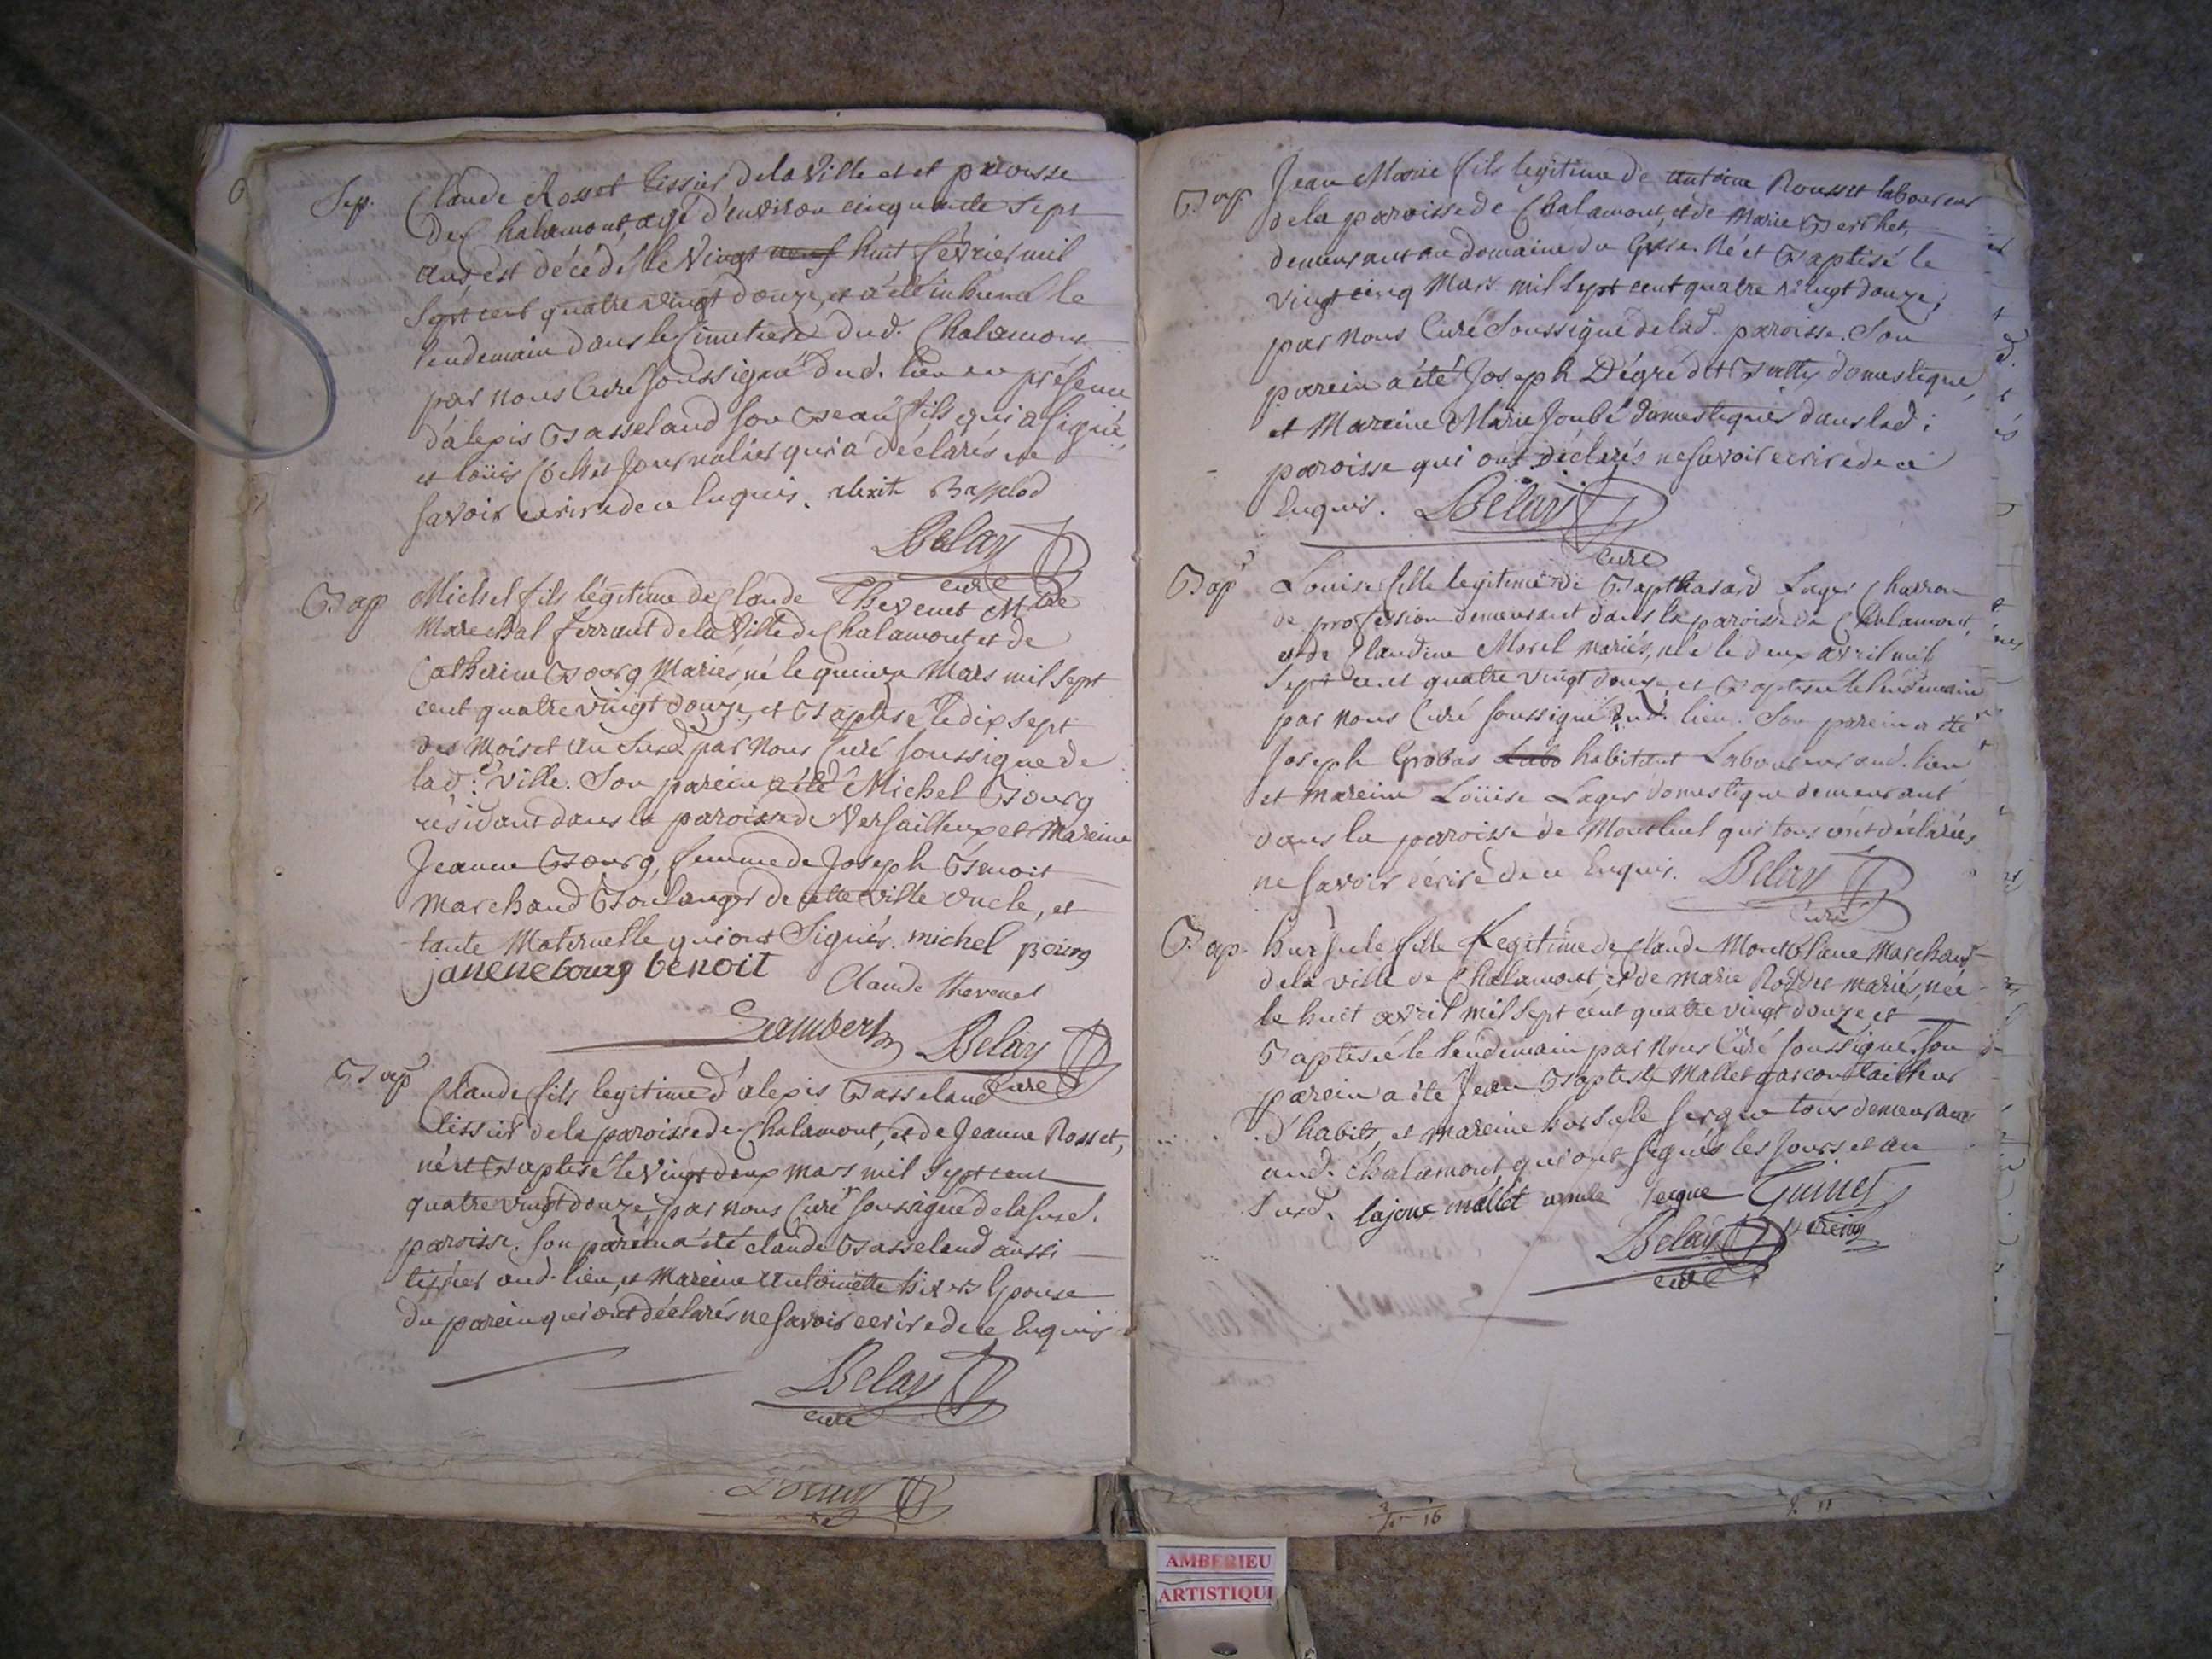 Sep. Claude Rosset tissier de la Ville et et paroisse
De Chalamont, agé d'environ cinquante sept
ans est décédé le Vingt neuf huit février mil
sept cent quatre vingt douze, et a été inhumé le
lendemain dans le Cimetiere dud. Chalamont
par nous Curé soussigné dud. lieu en présence
d'alexis Basseland son Beaufils, qui a signé
et loüis Cochet Journalier qui a déclarés ne
savoir écrire de ce Enquis. alexit Basselod
Belay
curé
Bap Michel fils légitime de Claude Thevenet Mtre
Marechal ferrant de la Ville de Chalamont et de
Catherine Bourg Mariés, né le quinze Mars mil sept
cent quatre vingt douze, et Baptisé le dix sept
des Mois et an susd. par Nous Curé soussigné de
lad. Ville. Son parein a été Michel Bourg
résidant dans la paroisse de Versailleux et Mareine
Jeanne Bourg, femme de Joseph Benoit
Marchand Boulanger de cette ville oncle, et
tante Maternelle qui ont Signés. michel Bourg
janene bourg benoit Claude thevenet
Lambert Belay
curé
Bap Claude fils legitime d'alexis Basseland
tissier de la paroisse de Chalamont, et de Jeanne Rosset,
né et Baptisé le Vingt deux mars mil sept cent
quatre vingt douze, par nous Curé soussigné de la susd.
paroisse. son parein a été claude Basseland aussi
tissier aud. lieu, et Mareine Antoinette Epouse
du parein qui ont déclarés ne savoir ecrire de ce Enquis
Belay
curé
Bap Jean Marie fils legitime de Antoine Rousset laboureur
de la paroisse de Chalamont, et de Marie Berthet,
demeurant au domaine du Né et Baptisé le
Vingt cinq Mars mil sept cent quatre vingt douze,
par nous Curé Soussigné de lad. paroisse. Son
parein a été Joseph Dégré dit domestique,
et Mareine Marie Joubé domestiques dans lad.
paroisse qui ont déclarés ne savoir ecrire de ce
Enquis. Belay
curé
Bap Louise fille legitime de Bapthasard Lager Charron
de profession demeurant dans la paroisse de Chalamont,
et de Claudine Morel mariés, née le deux avril mil
sept cent quatre vingt douze, et Baptisée le lendemain
par nous Curé soussigné dud. lieu. Son parein a été
Joseph Grobas Labo habitant Laboureur aud. lieu
et mareine Loüise Lager domestique demeurant
dans la paroisse de Montluel qui tous ont déclarés
ne savoir écrire de ce Enquis. Belay
Curé
Bap. hursule fille Legitime de Claude Montblanc Marchand
de la ville de Chalamont, et de Marie mariés, née
le huit avril mil sept cent quatre vingt douze et
Baptisée le lendemain par Nous Curé soussigné. son
parein a été Jean Baptiste Mallet garcon tailleur
d'habits, et mareine hursule Sergue tous demeurant
aud. Chalamont, qui ont signés les Jours et an
Susd. lajoue mallet ursule sergue Guinet
Belay
curé
3 16
AMBERIEU
ARTISTIQUE